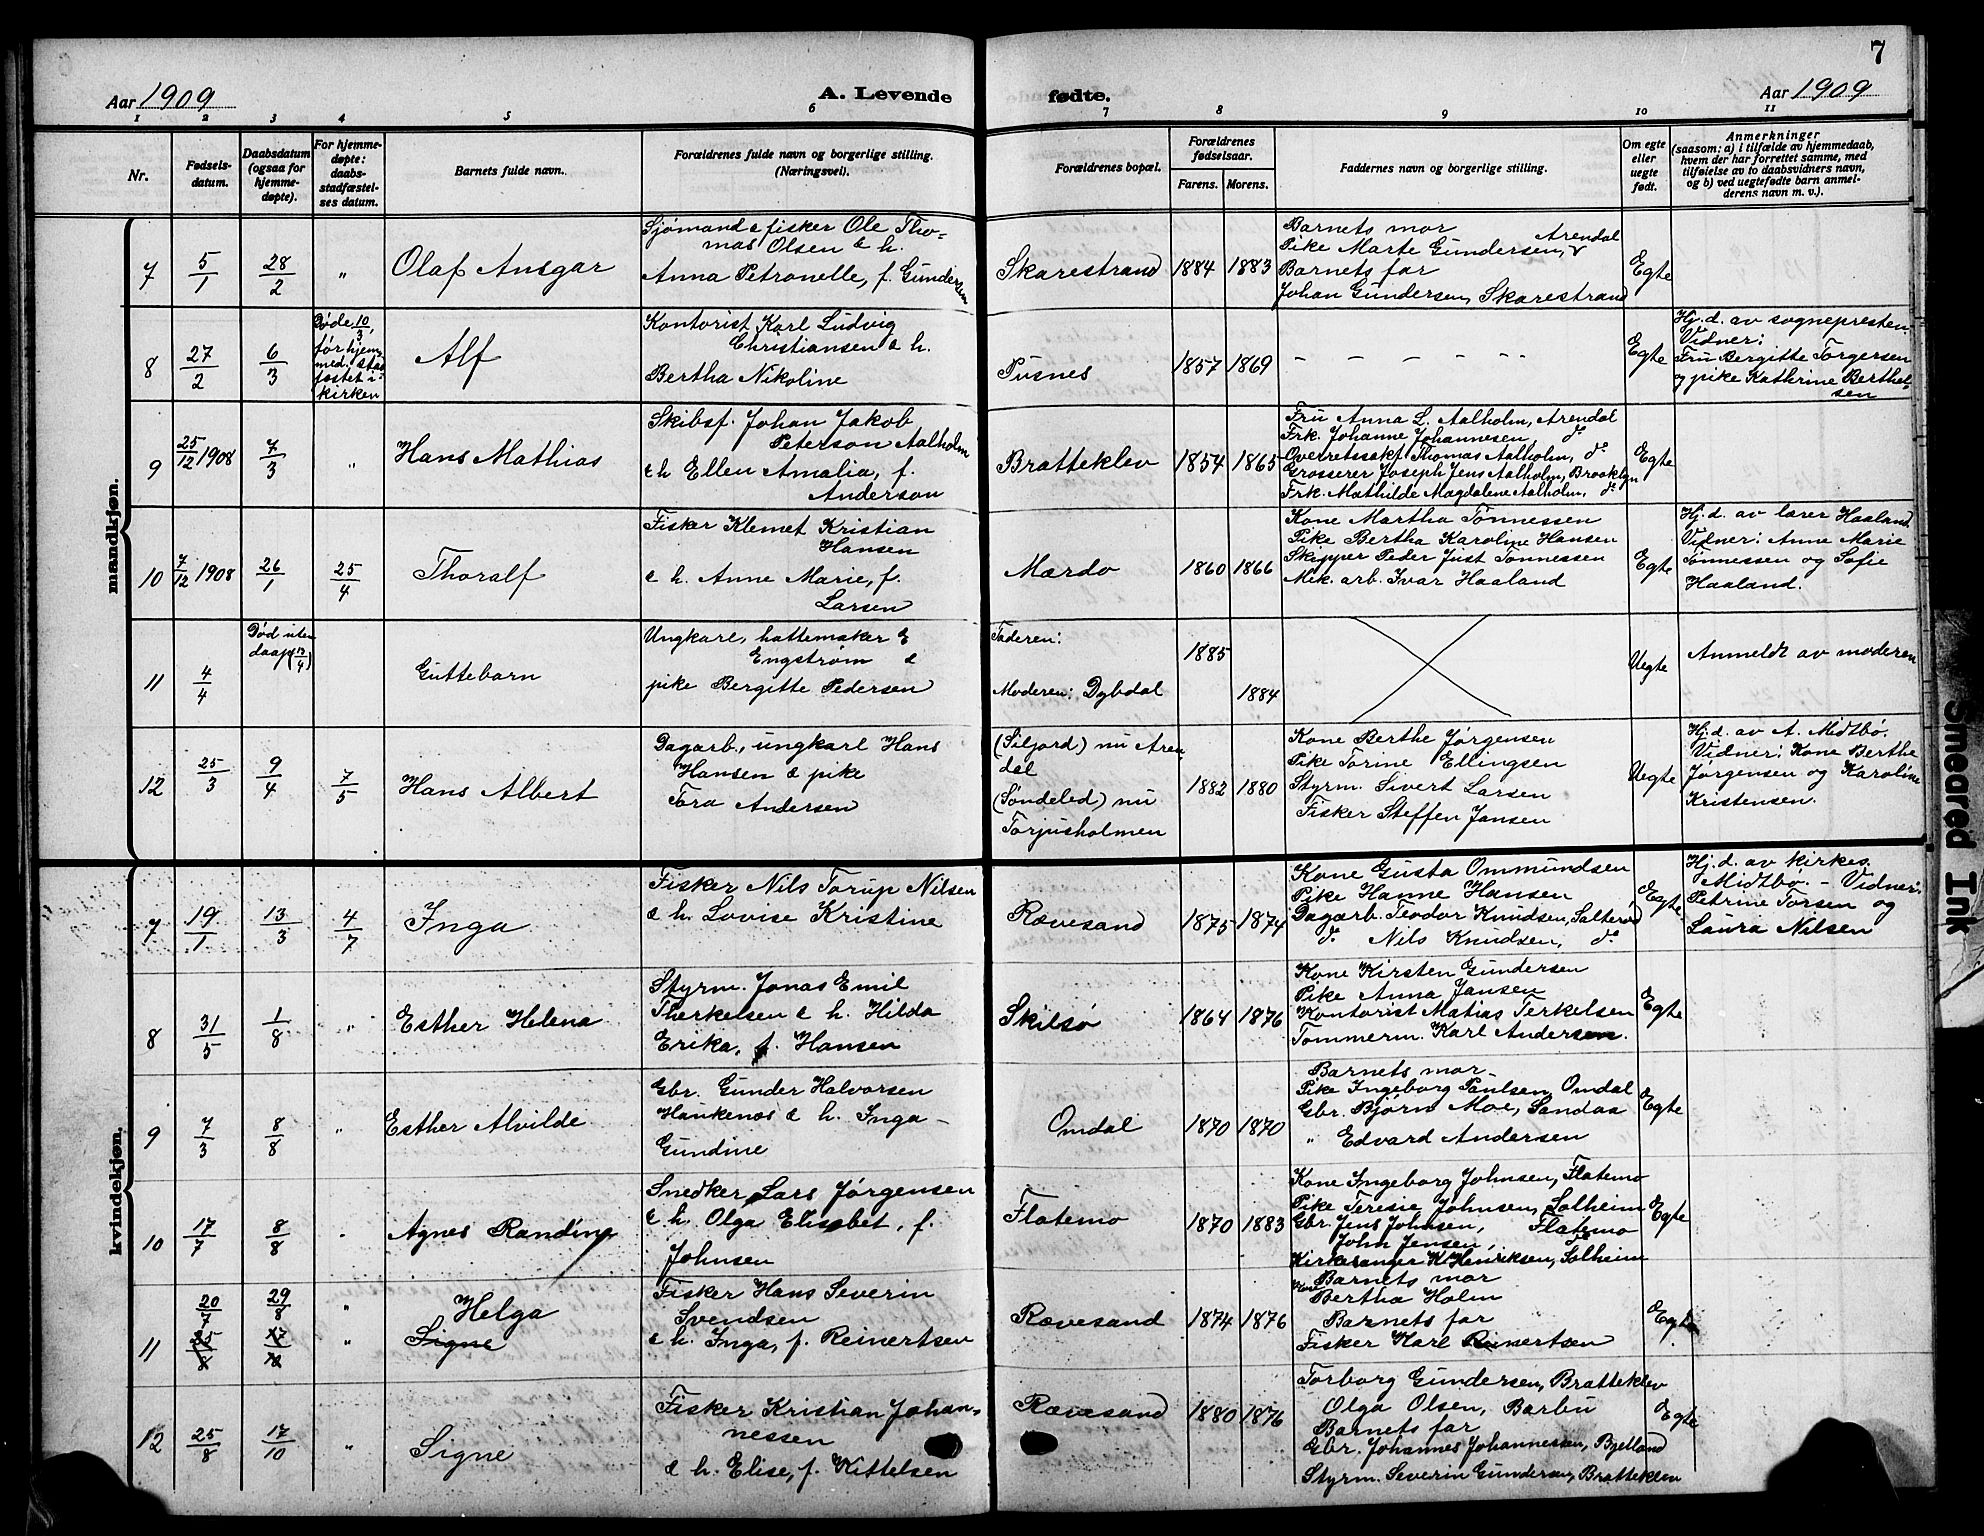 7
Aar 1909
A. Levende
fødte.
Aar 1909
1 2 3 4 5 6 7 8 9 10 11
Nr.
Fødsels-
datum.
Daabsdatum
(ogsaa for
hjemme-
døpte).
For hjemme-
døpte:
daabs-
stadfæstel-
ses datum.
Barnets fulde navn.
Forældrenes fulde navn og borgerlige stilling.
(Næringsvei).
Forældrenes bopæl.
Forældrenes
fødselsaar.
Farens. Morens.
Faddernes navn og borgerlige stilling.
Om egte
eller
uegte
født.
Anmerkninger
(saasom: a) i tilfælde av hjemmedaab,
hvem der har forrettet samme, med
tilføielse av to daabsvidners navn,
og b) ved uegtefødte barn anmel-
derens navn m. v.).
mandkjøn.
7
5/1
28/2
"
Olaf Ansgar
Sjømand & fisker Ole Tho=
mas Olsen & h.
Anna Petronelle, f. Gundersen
Skarestrand
1884
1883
Barnets mor
Pike Marte Gundersen, Arendal
Barnets far
Johan Gundersen, Skarestrand
Egte
8
27/2
6/3
Døde 10/3,
før hjem-
med. stad
fæstet i
kirken
Alf
Kontorist Karl Ludvig
Christiansen & h.
Bertha Nikoline
Pusnes
1857
1869
– – – – – –
Egte
Hj. d. av sognepresten.
Vidner:
Fru Bergitte Torgersen
og pike Kathrine Berthel-
sen
9
25/12 1908
7/3
"
Hans Mathias
Skibsf. Johan Jakob
Peterson Aalholm
& h Ellen Amalia, f.
Anderson
Bratteklev
1854
1865
Fru Anna L. Aalholm, Arendal
Frk. Johanne Johannesen, do
Overretssakf. Thomas Aalholm, do
Grosserer Joseph Jens Aalholm, Brooklyn
Frk. Mathilde Magdalene Aalholm, do
Egte
10
7/12 1908
26/1
25/4
Thoralf
Fisker Klemet Kristian
Hansen
& h. Anne Marie, f.
Larsen
Mærdø
1860
1866
Kone Martha Tønnessen
Pike Bertha Karoline Hansen
Skipper Peder Just Tønnessen
Mek. arb. Ivar Haaland
Egte
Hj. d. av lærer Haaland
Vidner: Anne Marie
Tønnessen og Sofie
Haaland.
11
4/4
Død uten
daap (13/4)
Guttebarn
Ungkarl, hattemaker E
Engstrøm &
pike Bergitte Pedersen
Faderen:
Moderen: Dybdal
1885
1884
Uegte
Anmeldt av moderen
12
25/3
9/4
7/5
Hans Albert
Dagarb., ungkarl Hans
Hansen & pike
Tora Andersen
(Siljord) nu Aren-
dal
(Søndeled) nu
Torjusholmen
1882
1880
Kone Berthe Jørgensen
Pike Torine Ellingsen
Styrm. Sivert Larsen
Fisker Steffen Jansen
Uegte
Hj. d. av A. Midtbø.
Vidner: Kone Berthe
Jørgensen og Karoline
Kristensen.
kvindekjøn.
7
19/1
13/3
4/7
Inga
Fisker Nils Torup Nilsen
& h. Lovise Kristine
Rævesand
1875
1874
Kone Gusta Ommundsen
Pike Hanne Hansen
Dagarb. Teodor Knudsen, Salterød
do Nils Knudsen, do
Egte
Hj. d. av kirkes.
Midtbø. – Vidner:
Petrine Torsen og
Laura Nilsen
8
31/5
1/8
"
Esther Helena
Styrm. Jonas Emil
Therkelsen & h. Hilda
Erika, f. Hansen
Skilsø
1864
1876
Kone Kirsten Gundersen
Pike Anna Jansen
Kontorist Matias Terkelsen
Tømmerm. Karl Andersen.
Egte
9
7/3
8/8
"
Esther Alvilde
Gbr. Gunder Halvorsen
Haukenæs & h. Inga
Gundine
Omdal
1870
1870
Barnets mor
Pike Ingeborg Paulsen, Omdal
Gbr. Bjørn Moe, Sandaa
" Edvard Andersen
Egte
10
17/7
8/8
"
Agnes Randine
Snedker Lars Jørgensen
& h. Olga Elisabet, f.
Johnsen
Flatemo
1870
1883
Kone Ingeborg Johnsen, Flatemo
Pike Teresie Johnsen, Solheim
Gbr. Jens Johnsen, Flatemo
John Jensen, do
Kirkesanger K. Henriksen, Solheim
Egte
11
20/7
29/8
"
"
Helga
Signe
Fisker Hans Severin
Svendsen
& h. Inga, f. Reinertsen
Rævesand
1874
1876
Barnets mor
Kone Bertha Holm
Barnets far
Fisker Karl Reinertsen
Egte
12
25/8
17/10
"
Signe
Fisker Kristian Johan-
nessen
& h. Elise, f. Kittelsen
Rævesand
1880
1876
Torborg Gundersen, Bratteklev
Olga Olsen, Barbu
Barnets far
Gbr. Johannes Johannessen, Bjelland
Styrm. Severin Gundersen, Bratteklev
Egte
Smeared Ink